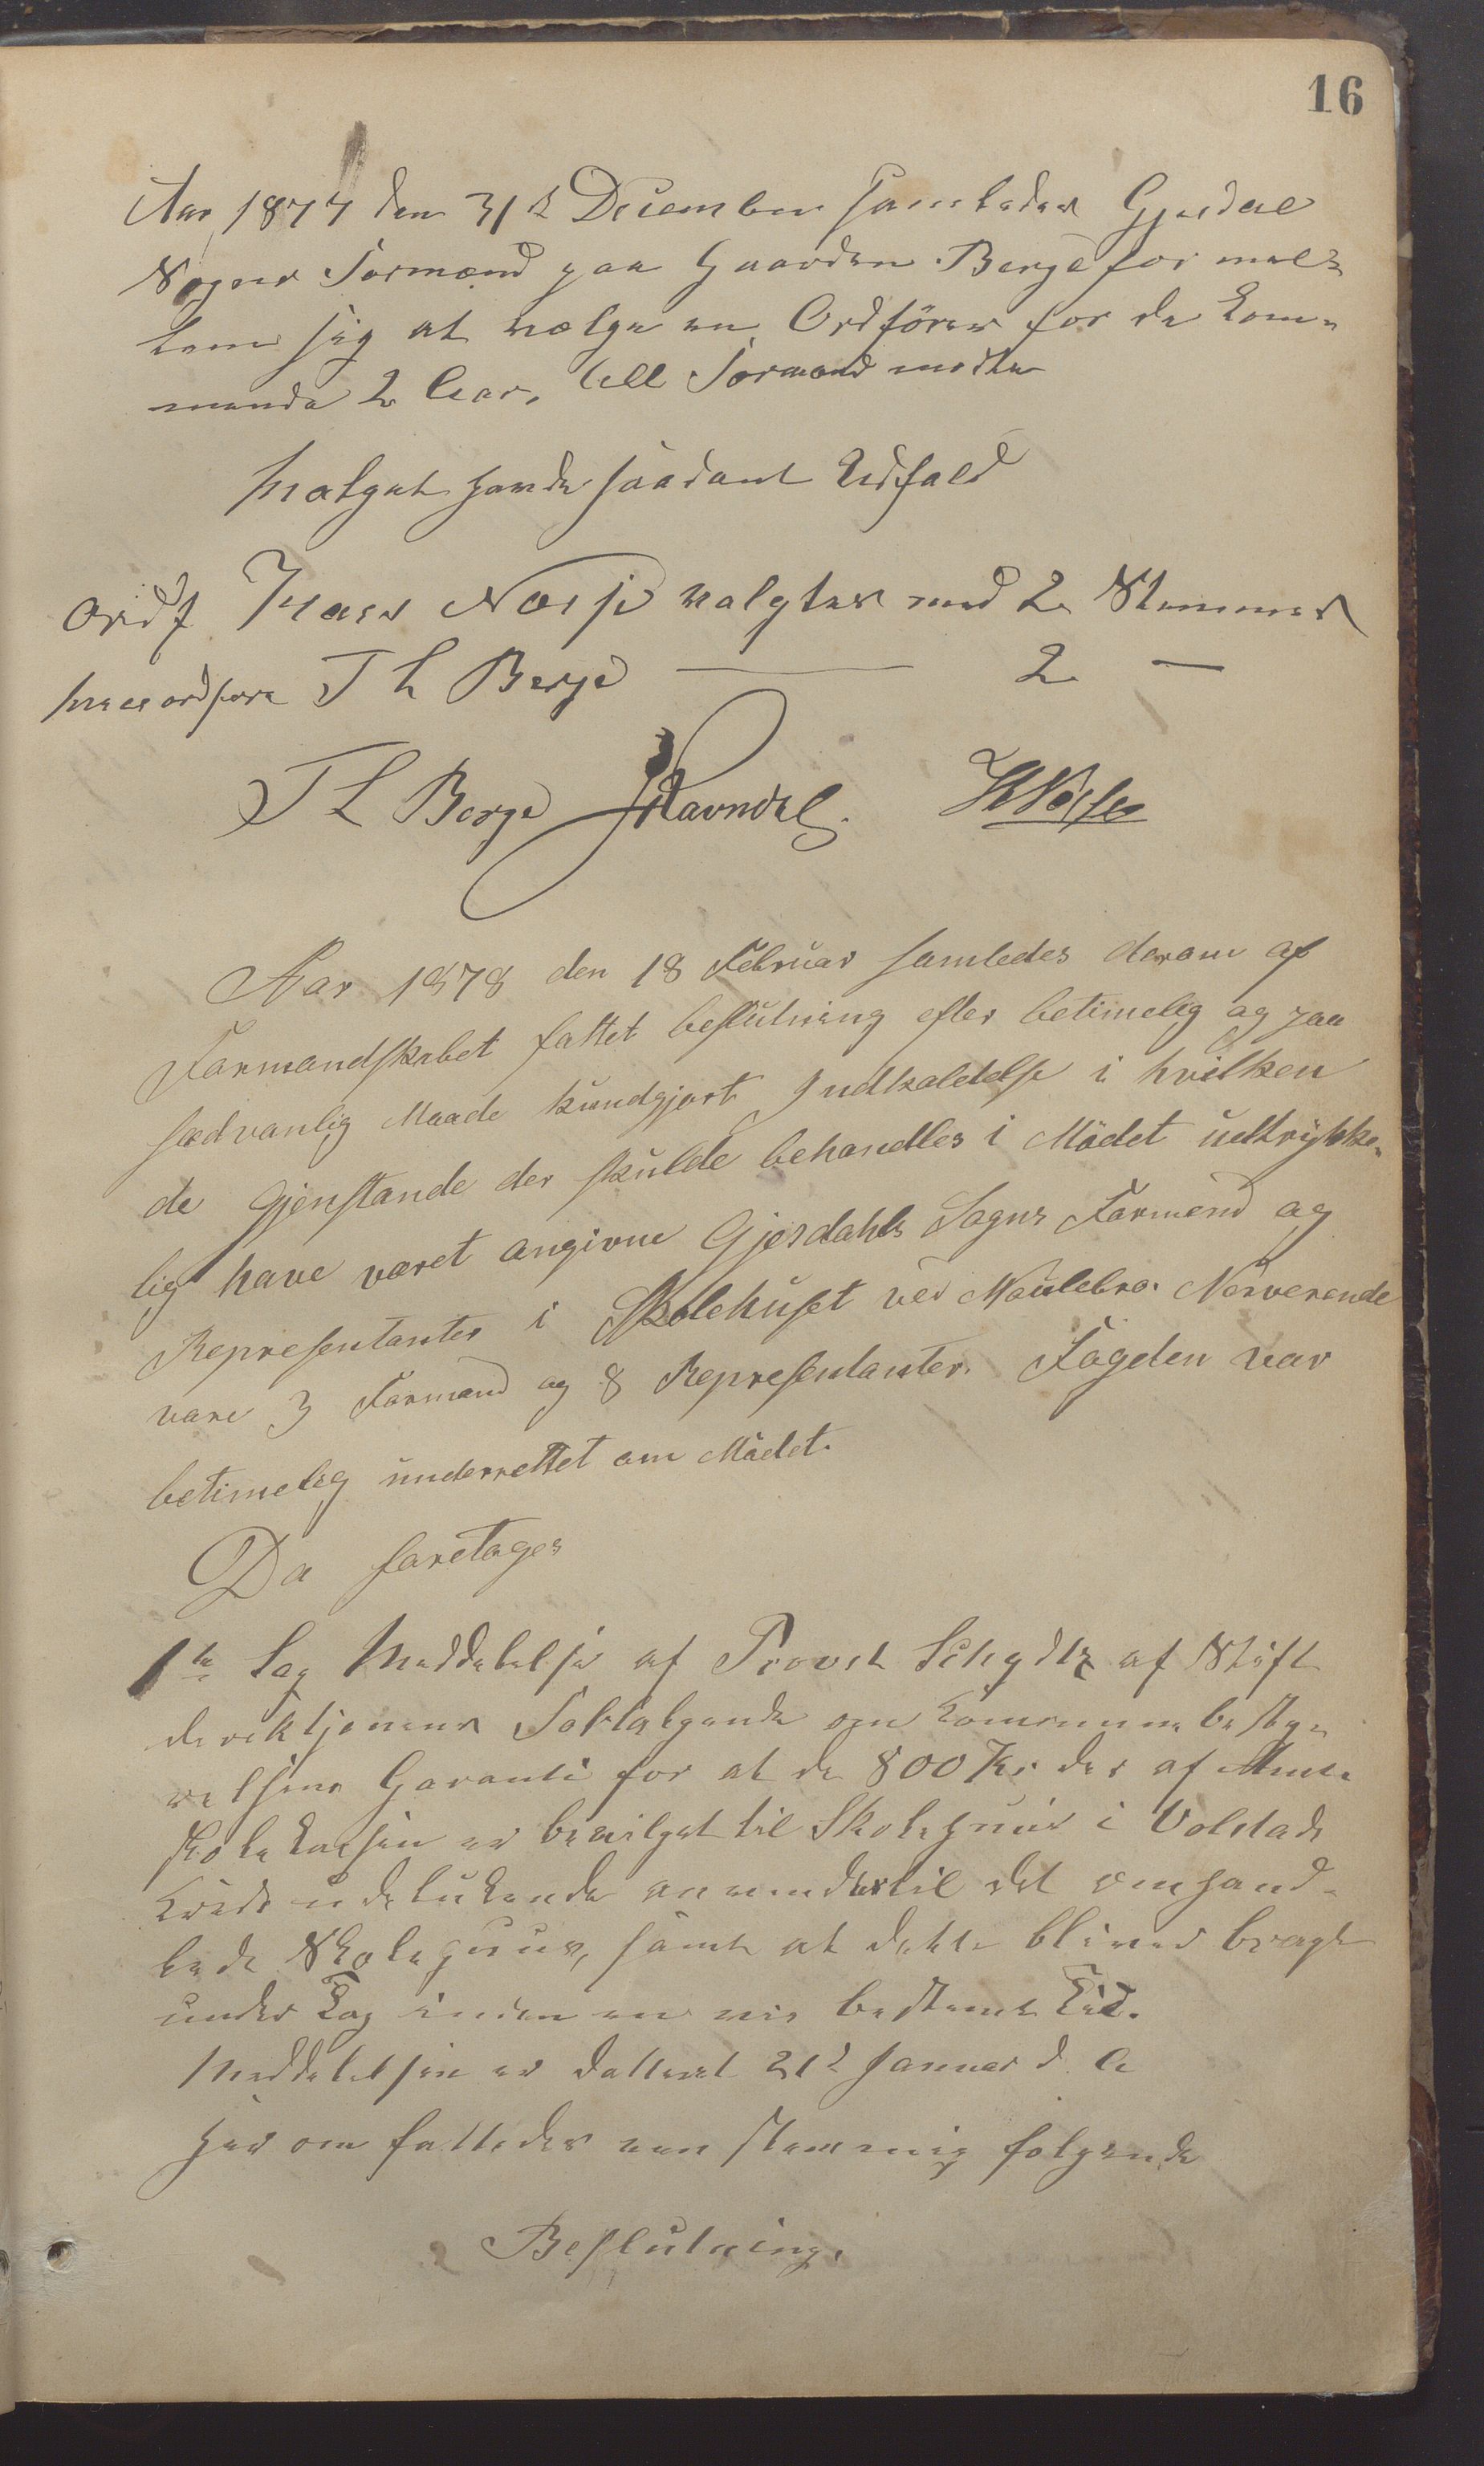 16
Aar 1877 den 31te December samledes Gjesdal
Sogns Formænd paa Gaarden Berge for mel-
lem sig at vælge en Ordförer for de kom-
mende 2 Aar. All Formænd mödte
Valget havde saadant Udfald
Ordf Næsse valgtes med 2 Stemmer
Viceordförer T L Berge — 2 —
T L Berge Ravndal
Aar 1878 den 18 Februar samledes derom af
Formandskabet fattet beslutning efter betimelig og paa
sædvanlig Maade kundgjort Indkaldelse i hvilken
de Gjenstande der skulde behandles i Mödet udtrykke-
lig have været angivne Gjesdahls Sogns Formænd og
Representanter i Skolehuset ved Noulebro. Nerverende
vare 3 Formænd og 8 Representanter. Fogden var
betimelig underrettet om Mödet.
Da foretoges
1te Sag Meddelelse af Provst Schydtz af Stift
derektjonens Forlangende om Kommunebesty-
relsens Garanti for at de 800 Kr der af Amts
skolekassen er bevilget til Skolehuus i Volstads
Kreds udelukende anvendes til det omhand-
lede Skolehuus, samt at dette bliver bragt
under Tag inden en vis bestemt Tid.
Meddelelsen er datteret 21de Januar d. A
Her om fattedes een stemmig folgende
Beslutning.